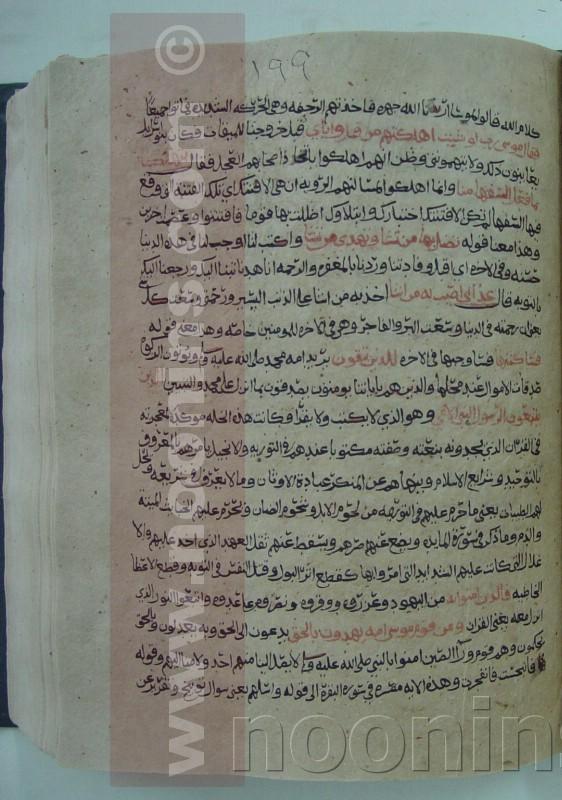 ١٩٩
كلام الله قالوا لموسى ارنا الله جهرة فاخذتهم الرجفة وهى الحركة الشديدة فماتوا جميعا
فقال موسى رب لو شئت اهلكتهم من قبل واياى قبل خروجنا للميقات فكان بنو
يعاينون ذلك ولا يتهمونى وظن انهم اهلكوا باتخاذ اصحابهم العجل فقال اتهلكنا
بما فعل السفها منا وانما اهلكوا لمسألتهم الروية ان هى الا فتنتك اى تلك الفتنة التى وقع
فيها السفها لم تكن الا فتنتك اختبارك وابتلاوك اضللت بها قوما فافتتنوا وعصمت اخرين
وهذا معنا قوله تضل بها من تشا وتهدى من تشا واكتب لنا وجب لنا فى هذه الدنيا
حسنة وفى الاخرة اى اقبل وفادتنا وردنا بالمغفرة والرحمة انا هدنا تبنا اليك ورجعنا اليك
بالتوبة قال عذابى اصيب به من اشا اخذ به من اشا على الذنب اليسير ورحمتى وسعت كل شى
يعنى ان رحمته فى الدنيا وسعت البر والفاجر وهى فى الاخرة للمومنين خاصة وهذا معنى قوله
فسأكتبها فسأوجبها فى الاخرة للذين يتقون يريد امة محمد صلى الله عليه ويوتون الزكوة
صدقات الاموال عند محلها والذين هم باياتنا يومنون يصدقون بما انزل على محمد والنبيين الذين
يتبعون الرسول النبى الامى وهو الذى لا يكتب ولا يقرا وكانت هذه الخلة موكدة لمعجزته
فى القران الذى يجدونه بنعته وصفته مكتوبا عندهم فى التورية والانجيل يامرهم بالمعروف
بالتوحيد وشرايع الاسلام وينهاهم عن المنكر عبادة الاوثان وما لا يعرف فى شريعة ويحل
لهم الطيبات يعنى ما حرم عليهم فى التورية من لحوم الابل وشحوم الضان ويحرم عليهم الخبايث الميتة
والدم وما ذكر فى سورة المايدة ويضع عنهم اصرهم ويسقط عنهم ثقل العهد الذى اخذ عليهم والا
غلال التى كانت عليهم الشدايد التى امروا بها كقطع اثر البول وقتل النفس فى التوبة وقطع الاعضا
الخاطية فالذين امنوا به من اليهود وعزروه ووقروه ونصروه على عدوه واتبعوا النور الذى
انزل معه يعنى القران ومن قوم موسى امة يهدون بالحق يدعون الى الحق وبه يعدلون وبالحق
يحكمون وهم قوم ورا الصين امنوا بالنبى صلى الله عليه لا يصل الينا منهم احد ولا منا اليهم وقوله
فانبجست فانفجرت وهذه الاية مفسرة فى سورة البقرة الى قوله واسالهم يعنى سوال توبيخ وتقرير عن
www.noorins.com ©
noorins